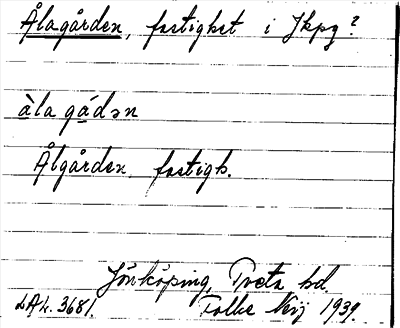 Ålagården, fastighet i Jkpg?
àla gádən
Ålgården, fastigh.
Jönköping, Tveta hd.
LAk. 3681. Folke Neij 1939.